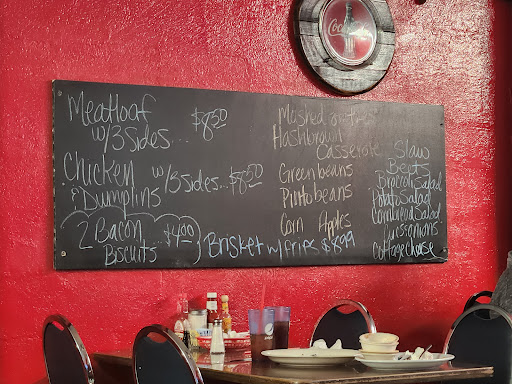 Coca-Cola
Meatloaf
w/3 Sides... $8.50
Chicken
& Dumplins
w/3 Sides... $8.50
2 Bacon
Biscuits
...$4.00
Brisket w/fries $8.99
Mashed
Hashbrown
Casserole
Green beans
Pinto beans
Corn Apples
Slaw
Beets
Broccoli Salad
Potato Salad
Cornbread Salad
Cottage Cheese